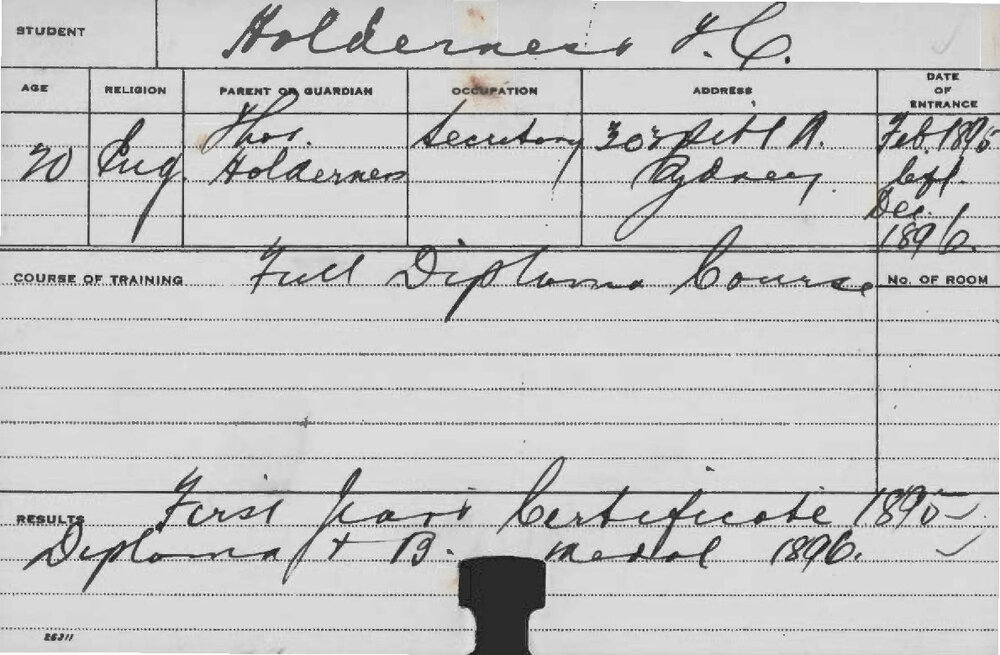 STUDENT Holderness F. C.
AGE RELIGION PARENT OR GUARDIAN OCCUPATION ADDRESS DATE OF ENTRANCE
20 Eng. Thos. Holderness Secretary Pitt St. Sydney. Feb. 1895
Left
Dec.
1896.
COURSE OF TRAINING Full Diploma Course No. OF ROOM
RESULTS First Years Certificate 1895
Diploma & B. Medal 1896.
26311